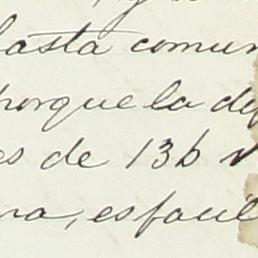 hasta comun
porque la de
es de 136
na, es facil